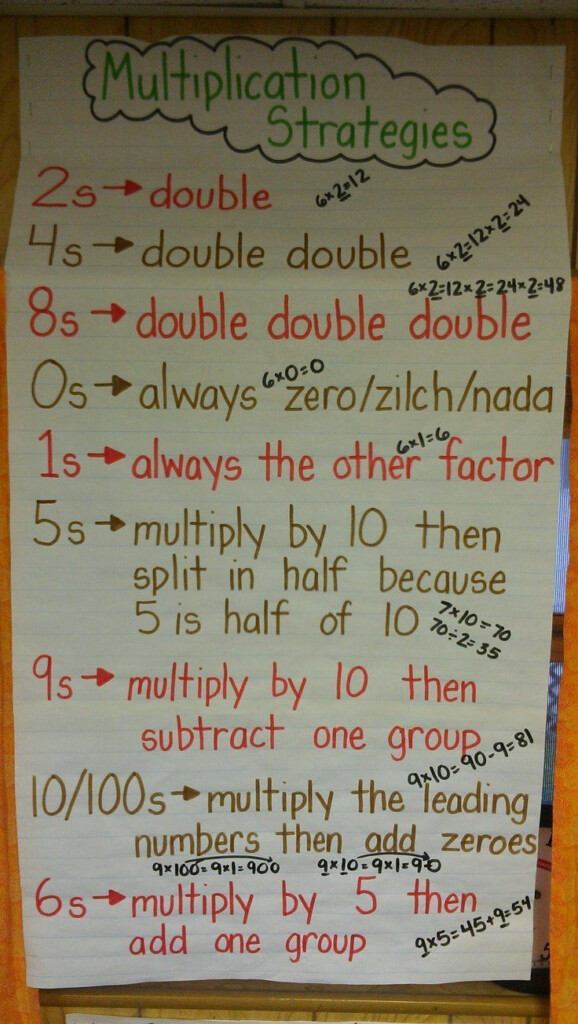 Multiplication
Strategies
2s → double 6×2=12
4s → double double 6×2=12×2=24
6×2=12×2=24×2=48
8s → double double double
6×0=0
0s → always zero/zilch/nada
6×1=6
1s → always the other factor
5s → multiply by 10 then
split in half because
5 is half of 10 7×10=70
70÷2=35
9s → multiply by 10 then
subtract one group
9×10=90-9=81
10/100s → multiply the leading
numbers then add zeroes
9×100=9×1=900 9×10=9×1=90
6s → multiply by 5 then
add one group 9×5=45+9=54